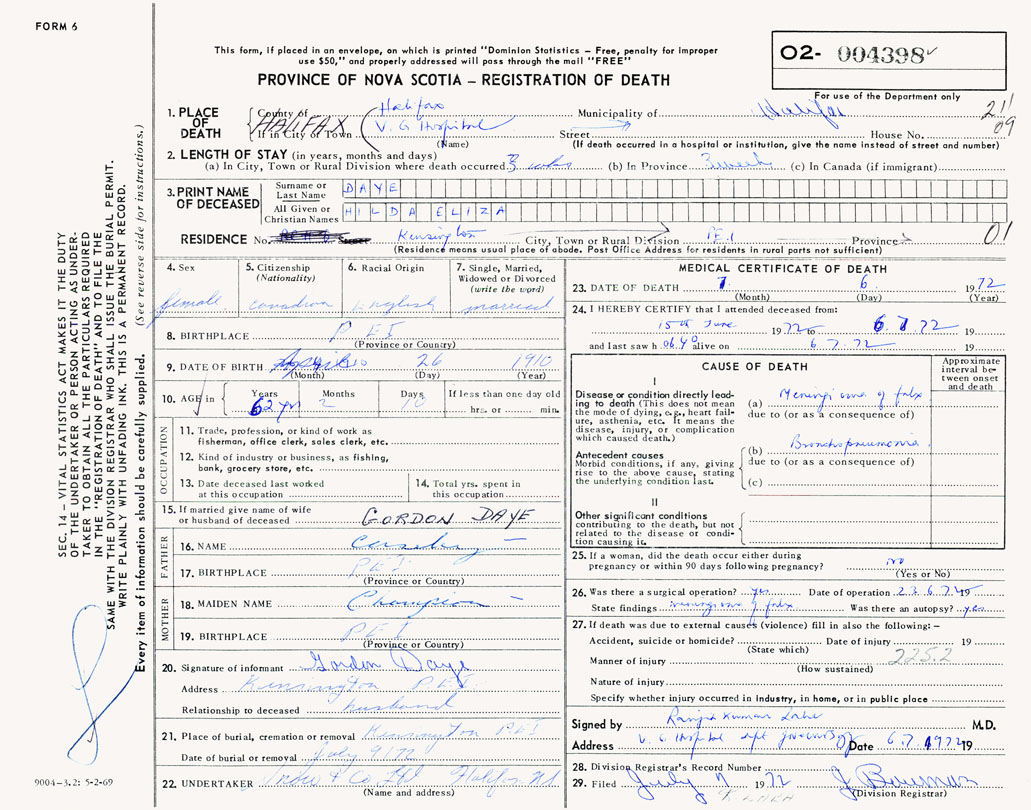 FORM 6
This form, if placed in an envelope, on which is printed "Dominion Statistics – Free, penalty for improper
use $50," and properly addressed will pass through the mail "FREE"
PROVINCE OF NOVA SCOTIA – REGISTRATION OF DEATH
O2- 004398
For use of the Department only
1. PLACE OF DEATH
County of Halifax Municipality of Halifax 211
HALIFAX If in City or Town V. G Hospital Street House No. 09
(Name) (If death occurred in a hospital or institution, give the name instead of street and number)
2. LENGTH OF STAY (in years, months and days)
(a) In City, Town or Rural Division where death occurred 3 wks (b) In Province 3 weeks (c) In Canada (if immigrant)
3. PRINT NAME OF DECEASED
Surname or Last Name DAYE
All Given or Christian Names HILDA ELIZA
RESIDENCE No. Street Kensington City, Town or Rural Division P.E.I Province 01
(Residence means usual place of abode. Post Office Address for residents in rural parts not sufficient)
4. Sex
female
5. Citizenship
(Nationality)
Canadian
6. Racial Origin
English
7. Single, Married,
Widowed or Divorced
(write the word)
married
8. BIRTHPLACE P E I
(Province or Country)
9. DATE OF BIRTH April 26 1910
(Month) (Day) (Year)
10. AGE in Years Months Days If less than one day old
62 yrs 2 10 hrs. or min.
OCCUPATION
11. Trade, profession, or kind of work as
fisherman, office clerk, sales clerk, etc.
12. Kind of industry or business, as fishing,
bank, grocery store, etc.
13. Date deceased last worked
at this occupation
14. Total yrs. spent in
this occupation
15. If married give name of wife
or husband of deceased GORDON DAYE
FATHER
16. NAME
17. BIRTHPLACE P E I
(Province or Country)
MOTHER
18. MAIDEN NAME Champion
19. BIRTHPLACE P E I
(Province or Country)
20. Signature of informant Gordon Daye
Address Kensington P.E.I.
Relationship to deceased husband
21. Place of burial, cremation or removal Kensington P E I
Date of burial or removal July 9/72
22. UNDERTAKER Snow & Co Ltd Halifax NS
(Name and address)
MEDICAL CERTIFICATE OF DEATH
23. DATE OF DEATH 7 6 1972
(Month) (Day) (Year)
24. I HEREBY CERTIFY that I attended deceased from:
15th June 1972 to 6 7 72 19
and last saw h alive on 6.7.72 19
CAUSE OF DEATH
Approximate
interval be-
tween onset
and death
I
Disease or condition directly lead-
ing to death (This does not mean
the mode of dying, e.g., heart fail-
ure, asthenia, etc. It means the
disease, injury, or complication
which caused death.)
(a) Meningioma of falx
due to (or as a consequence of)
Antecedent causes
Morbid conditions, if any, giving
rise to the above cause, stating
the underlying condition last.
(b) Bronchopneumonia
due to (or as a consequence of)
(c)
II
Other significant conditions
contributing to the death, but not
related to the disease or condi-
tion causing it.
25. If a woman, did the death occur either during
pregnancy or within 90 days following pregnancy? no
(Yes or No)
26. Was there a surgical operation? yes Date of operation 23.6.72 19
State findings meningioma of falx Was there an autopsy? yes
27. If death was due to external causes (violence) fill in also the following: –
Accident, suicide or homicide? Date of injury 19
(State which)
Manner of injury 225.2
(How sustained)
Nature of injury
Specify whether injury occurred in industry, in home, or in public place
Signed by Kumar M.D.
Address V. G Hospital Date 6.7.1972 19
28. Division Registrar's Record Number
29. Filed July 7 1972
(Division Registrar)
SEC. 14 – VITAL STATISTICS ACT MAKES IT THE DUTY
OF THE UNDERTAKER OR PERSON ACTING AS UNDER-
TAKER TO OBTAIN ALL THE PARTICULARS REQUIRED
IN THE "REGISTRATION OF DEATH" AND TO FILE THE
SAME WITH THE DIVISION REGISTRAR WHO SHALL ISSUE THE BURIAL PERMIT.
WRITE PLAINLY WITH UNFADING INK. THIS IS A PERMANENT RECORD.
Every item of information should be carefully supplied. (See reverse side for instructions.)
9004-3.2: 5-2-69